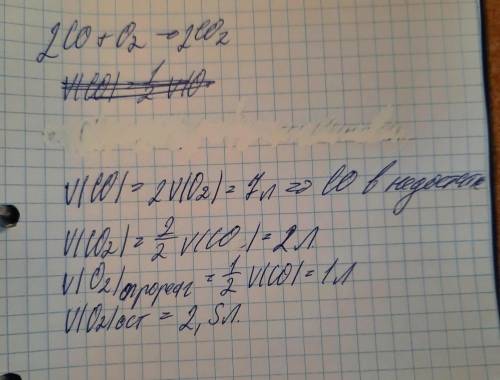 2CO + O₂ → 2CO₂
V(CO) = 1/2 V(O
V(CO) = 2V(O₂) = 7л => CO в недостатке
V(CO₂) = 2/2 V(CO) = 2л
V(O₂)прореаг = 1/2 V(CO) = 1л
V(O₂)ост = 2,5л.